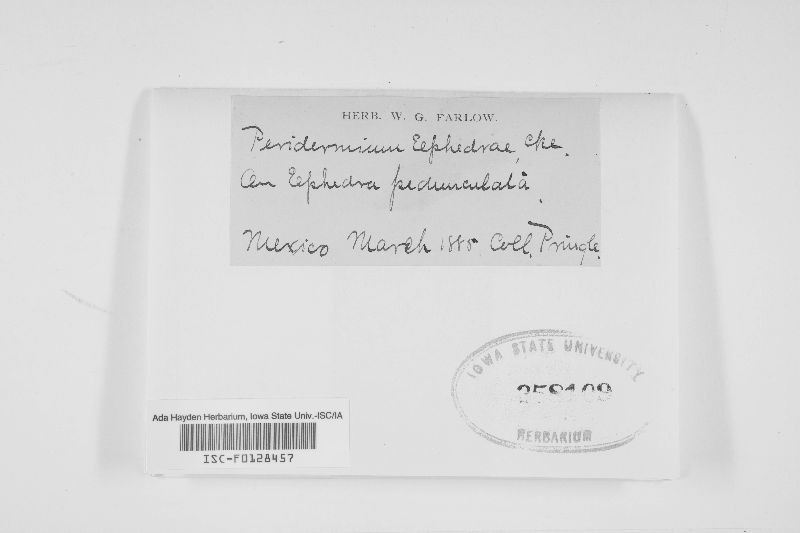 HERB. W. G. FARLOW.
Peridermium Ephedrae, Cke.
On Ephedra pedunculata
Mexico March 1885. Coll. Pringle.
IOWA STATE UNIVERSITY
HERBARIUM
Ada Hayden Herbarium, Iowa State Univ.-ISC/IA
ISC-F0128457